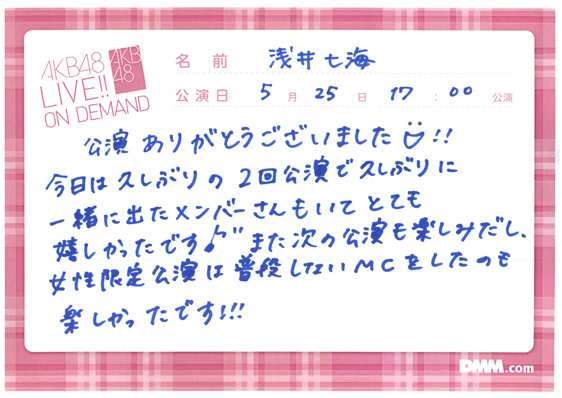 AKB48
LIVE!!
ON DEMAND
AKB
48
名前 浅井七海
公演日 5月25日 17:00公演
公演ありがとうございました!!
今日は久しぶりの2回公演で久しぶりに
一緒に出たメンバーさんもいてとても
嬉しかったです♪"また次の公演も楽しみだし、
女性限定公演は普段しないMCをしたのも
楽しかったです!!!
DMM.com